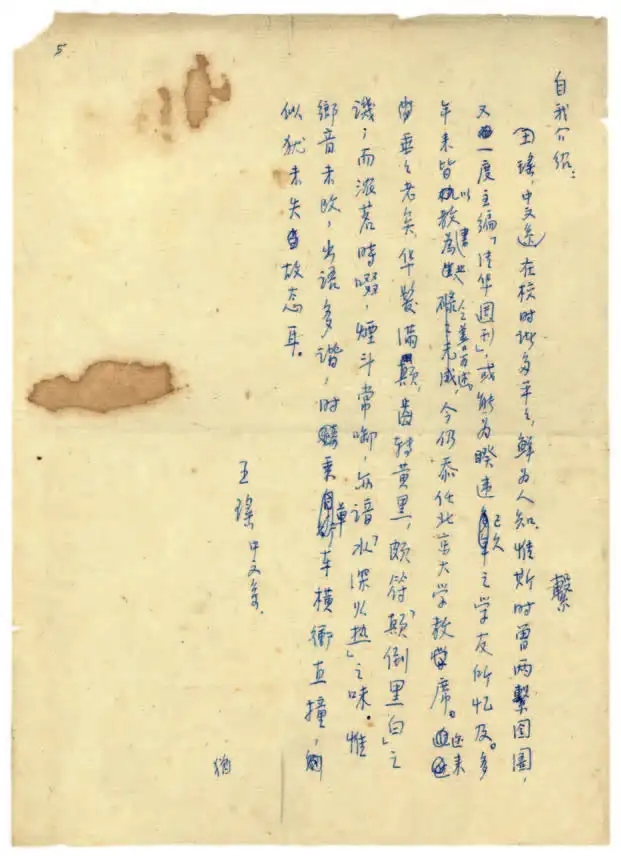 5
自我介绍：
王瑶，中文系，在校时诸多平平，鲜为人知。惟斯时曾两繫囹圄，
繫
又一度主编「清华週刊」，或能为暌违已久之学友所忆及。多
年来皆以教书为业，碌碌无成，今仍忝任北京大学教席。近来
垂垂老矣，华髮满颠，齿转黄黑，颇符「颠倒黑白」之
讥；而浓茗時啜，煙斗常啣，亦谙「水深火热」之味。惟
鄉音未改，出语多谐，时乘单车横衝直撞，
似犹未失故态耳。
王瑤 中文系
猶